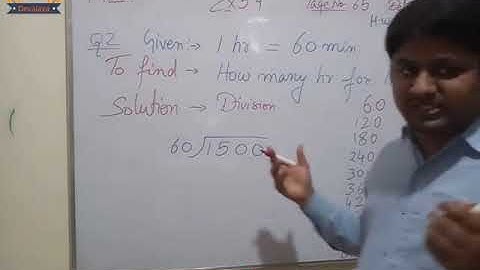 Devalaxa
2x34
Page No 65
Q2 Given:→ 1 hr = 60 min
To find → How many hr for
Solution → Division
60
120
180
240
60)1500